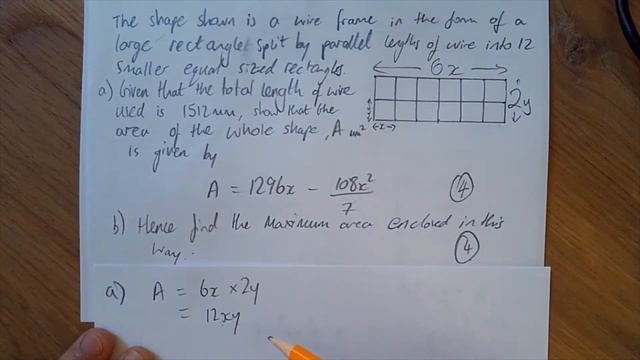 The shape shown is a wire frame in the form of a
large rectangle split by parallel lengths of wire into 12
smaller equal sized rectangles.
6x
a) Given that the total length of wire
used is 1512mm, show that the
area of the whole shape, A mm²
is given by
2y
y
x
A = 1296x - 108x²/7
(4)
b) Hence find the maximum area enclosed in this
way.
(4)
a) A = 6x × 2y
= 12xy